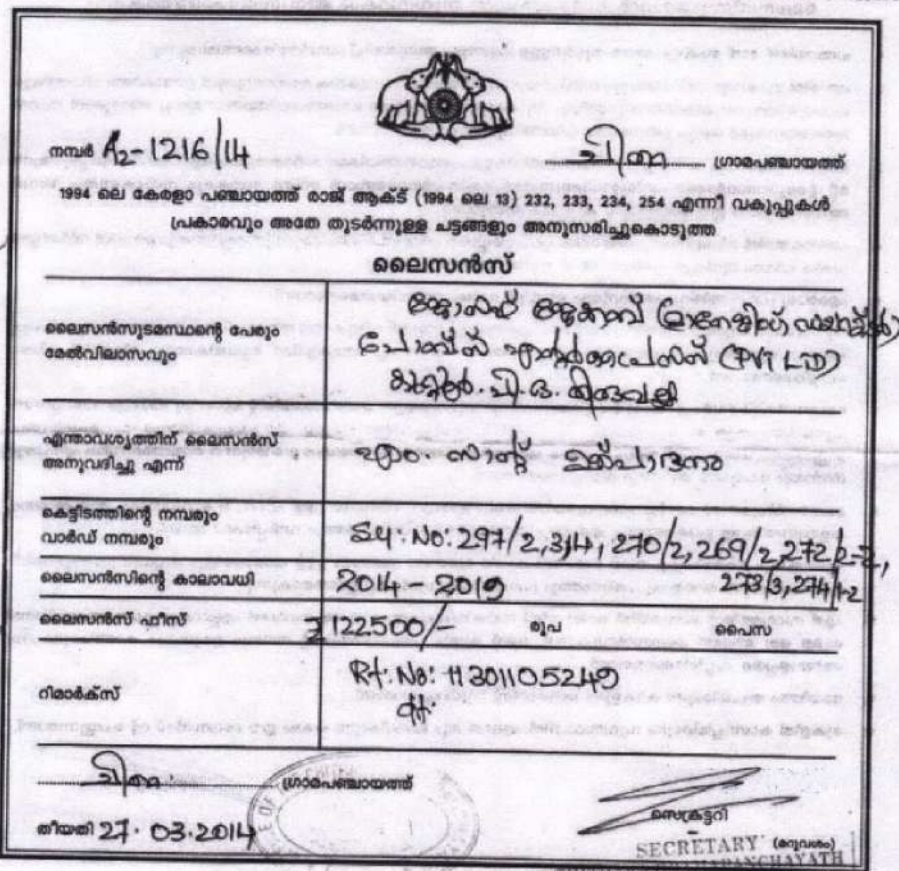 നമ്പർ A2-1216/14 ചിതറ ഗ്രാമപഞ്ചായത്ത്
1994 ലെ കേരളാ പഞ്ചായത്ത് രാജ് ആക്ട് (1994 ലെ 13) 232, 233, 234, 254 എന്നീ വകുപ്പുകൾ
പ്രകാരവും അതേ തുടർന്നുള്ള ചട്ടങ്ങളും അനുസരിച്ചുകൊടുത്ത
ലൈസൻസ്
ലൈസൻസുടമസ്ഥന്റെ പേരും
മേൽവിലാസവും
ജോസഫ് ജേക്കബ് (മാനേജിംഗ് ഡയറക്ടർ)
പോബ്സ് എന്റർപ്രൈസസ് (PVT LTD)
പി.ഒ. തിരുവല്ല
എന്താവശ്യത്തിന് ലൈസൻസ്
അനുവദിച്ചു എന്ന്
എം. സാന്റ് ഉത്പാദനം
കെട്ടിടത്തിന്റെ നമ്പരും
വാർഡ് നമ്പരും
Sy: No: 297/2,3,4, 270/2, 269/2, 272/2-2,
273/3, 274/1-2
ലൈസൻസിന്റെ കാലാവധി 2014 - 2019
ലൈസൻസ് ഫീസ് 122500/- രൂപ പൈസ
റിമാർക്സ്
Rt: No: 11301105249
ചിതറ ഗ്രാമപഞ്ചായത്ത്
തീയതി 27.03.2014
സെക്രട്ടറി
SECRETARY (മറുവശം)